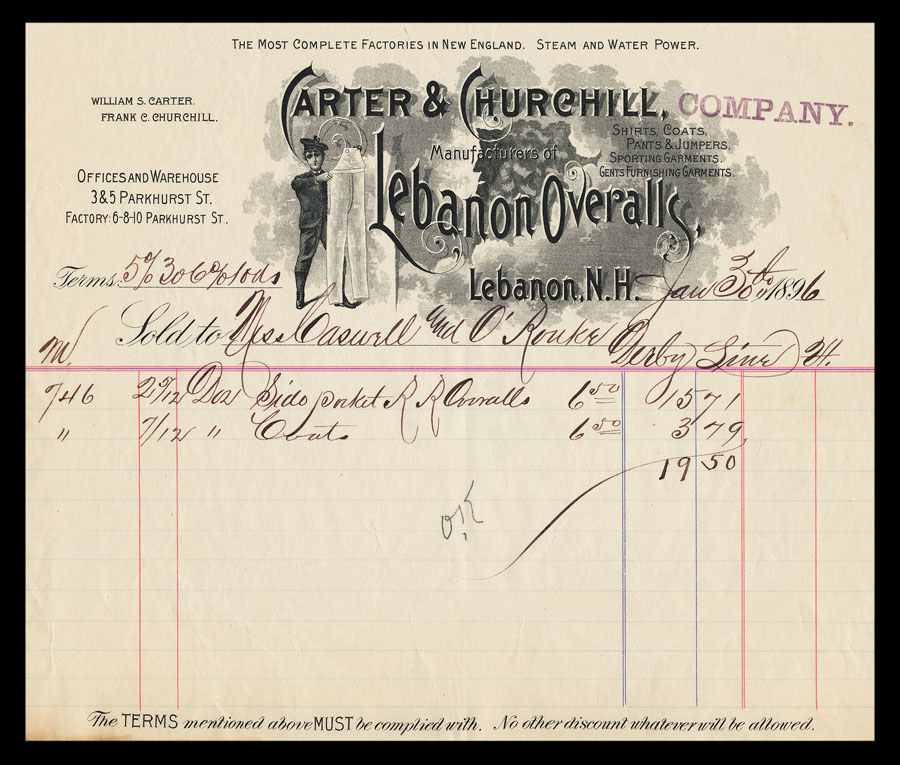 The Most Complete Factories in New England. Steam and Water Power.
William S. Carter.
Frank C. Churchill.
Carter & Churchill, COMPANY.
Manufacturers of
Shirts, Coats,
Pants & Jumpers,
Sporting Garments,
Gents Furnishing Garments.
Lebanon Overalls,
Offices and Warehouse
3 & 5 Parkhurst St.
Factory: 6-8-10 Parkhurst St.
Terms 5% 30 6% 10ds
Lebanon, N.H. Jan 30th 1896
Sold to Mess Caswell and O'Rouke
M. Derby Line Vt.
746 2 5/12 Doz Side pocket R R Overalls 6 50 15 71
" 7/12 " Coats 6 50 3 79
19 50
OK
The TERMS mentioned above MUST be complied with. No other discount whatever will be allowed.